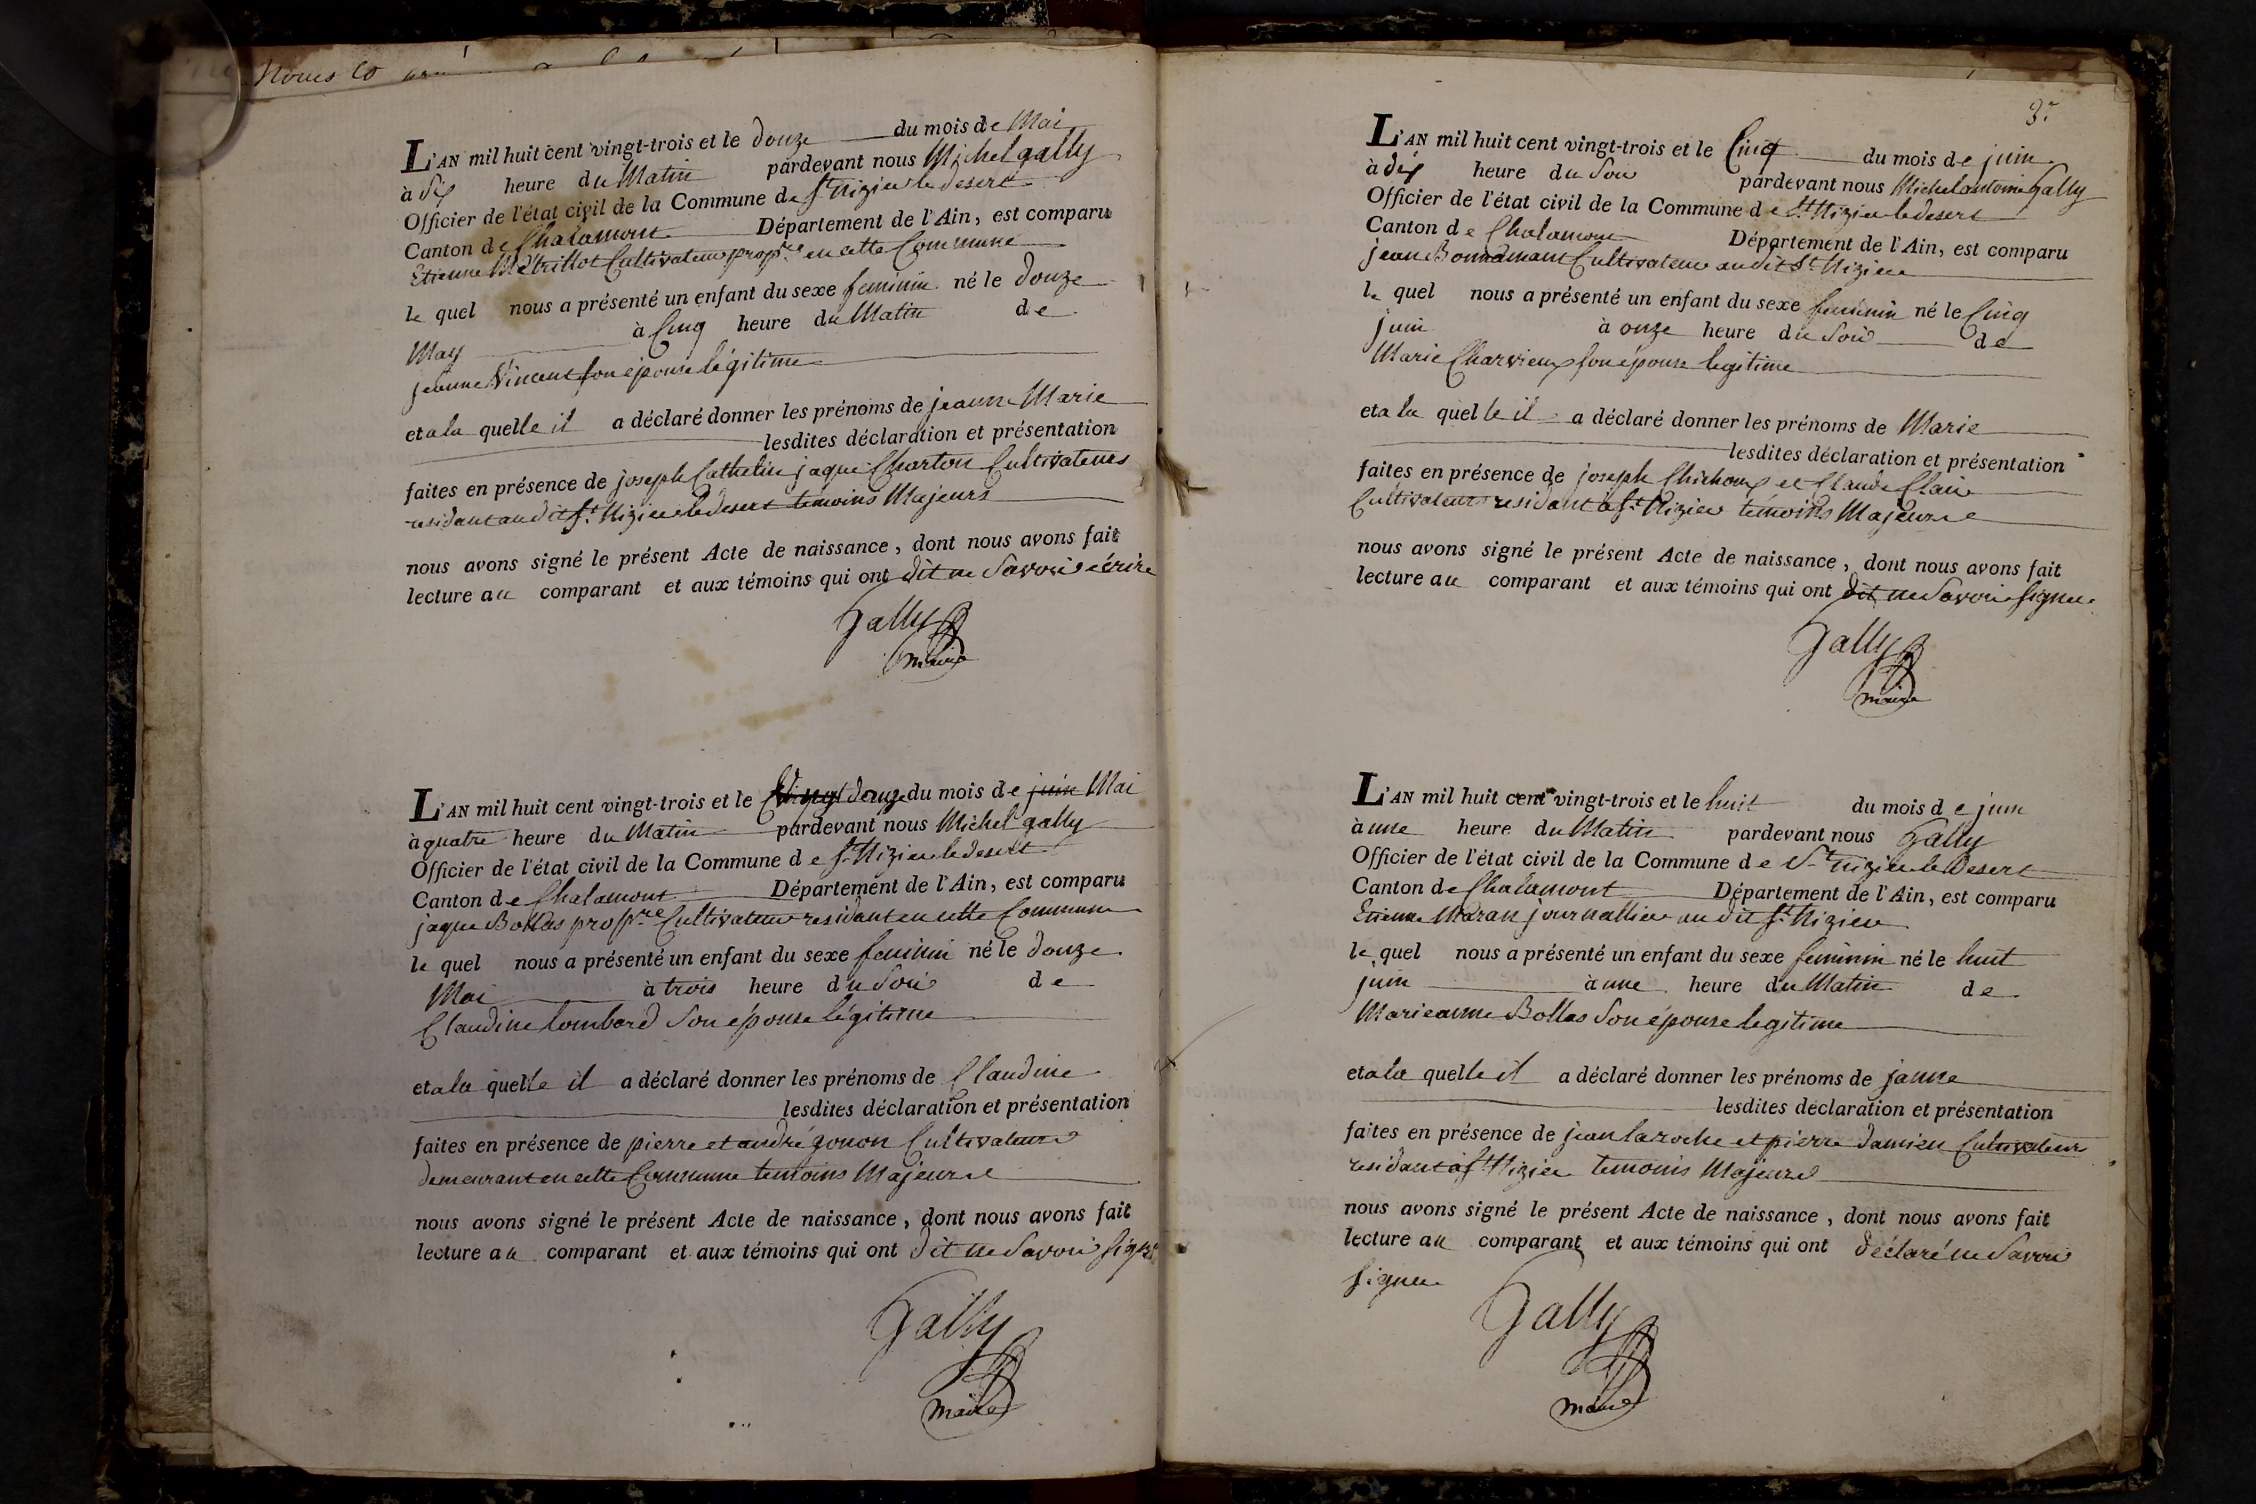 Nous co
L'AN mil huit cent vingt-trois et le douze du mois de Mai
à dix heure du Matin pardevant nous Michel gally
Officier de l'état civil de la Commune de St Nizier le desert
Canton de Chalamont Département de l'Ain, est comparu
Etienne Cultivateur propre en cette Commune
le quel nous a présenté un enfant du sexe feminin né le douze
May à Cinq heure du Matin de
jeanne Vincent son épouse légitime
et a la quelle il a déclaré donner les prénoms de jeanne Marie
lesdites déclaration et présentation
faites en présence de joseph Cathelin jaque Charton Cultivateurs
residant au dit St Nizier le desert témoins Majeurs
nous avons signé le présent Acte de naissance, dont nous avons fait
lecture au comparant et aux témoins qui ont dit ne Savoir écrire
Gally
maire
L'AN mil huit cent vingt-trois et le douze du mois de juin Mai
à quatre heure du Matin pardevant nous Michel gally
Officier de l'état civil de la Commune de St Nizier le desert
Canton de Chalamont Département de l'Ain, est comparu
jaque Bollas propre Cultivateur residant en cette Commune
le quel nous a présenté un enfant du sexe feminin né le douze
Mai à trois heure du Soir de
Claudine lombard Son épouse légitime
et a la quelle il a déclaré donner les prénoms de Claudine
lesdites déclaration et présentation
faites en présence de pierre et andré gonon Cultivateurs
demeurant en cette Commune temoins Majeurs
nous avons signé le présent Acte de naissance, dont nous avons fait
lecture au comparant et aux témoins qui ont dit ne Savoir signer
Gally
maire
3.
L'AN mil huit cent vingt-trois et le Cinq du mois de juin
à dix heure du Soir pardevant nous Michel antoine Gally
Officier de l'état civil de la Commune de St Nizier le desert
Canton de Chalamont Département de l'Ain, est comparu
jean Bonnamant Cultivateur au dit St Nizier
le quel nous a présenté un enfant du sexe feminin né le Cinq
juin à onze heure du Soir de
Marie Charvieux son épouse legitime
et a la quelle il a déclaré donner les prénoms de Marie
lesdites déclaration et présentation
faites en présence de joseph Chichoux et Claude Clair
Cultivateurs residant à St Nizier témoins Majeurs
nous avons signé le présent Acte de naissance, dont nous avons fait
lecture au comparant et aux témoins qui ont dit ne Savoir signer
Gally
maire
L'AN mil huit cent vingt-trois et le huit du mois de juin
à une heure du Matin pardevant nous Gally
Officier de l'état civil de la Commune de St nizier le Desert
Canton de Chalamont Département de l'Ain, est comparu
Etienne Maran journallier au dit St Nizier
le quel nous a présenté un enfant du sexe feminin né le huit
juin à une heure du Matin de
Marieanne Bollas Son épouse legitime
et a la quelle il a déclaré donner les prénoms de janne
lesdites déclaration et présentation
faites en présence de jean laroche et pierre damien Cultivateurs
residant à St Nizier temoins Majeurs
nous avons signé le présent Acte de naissance, dont nous avons fait
lecture au comparant et aux témoins qui ont déclaré ne Savoir
signer
Gally
maire